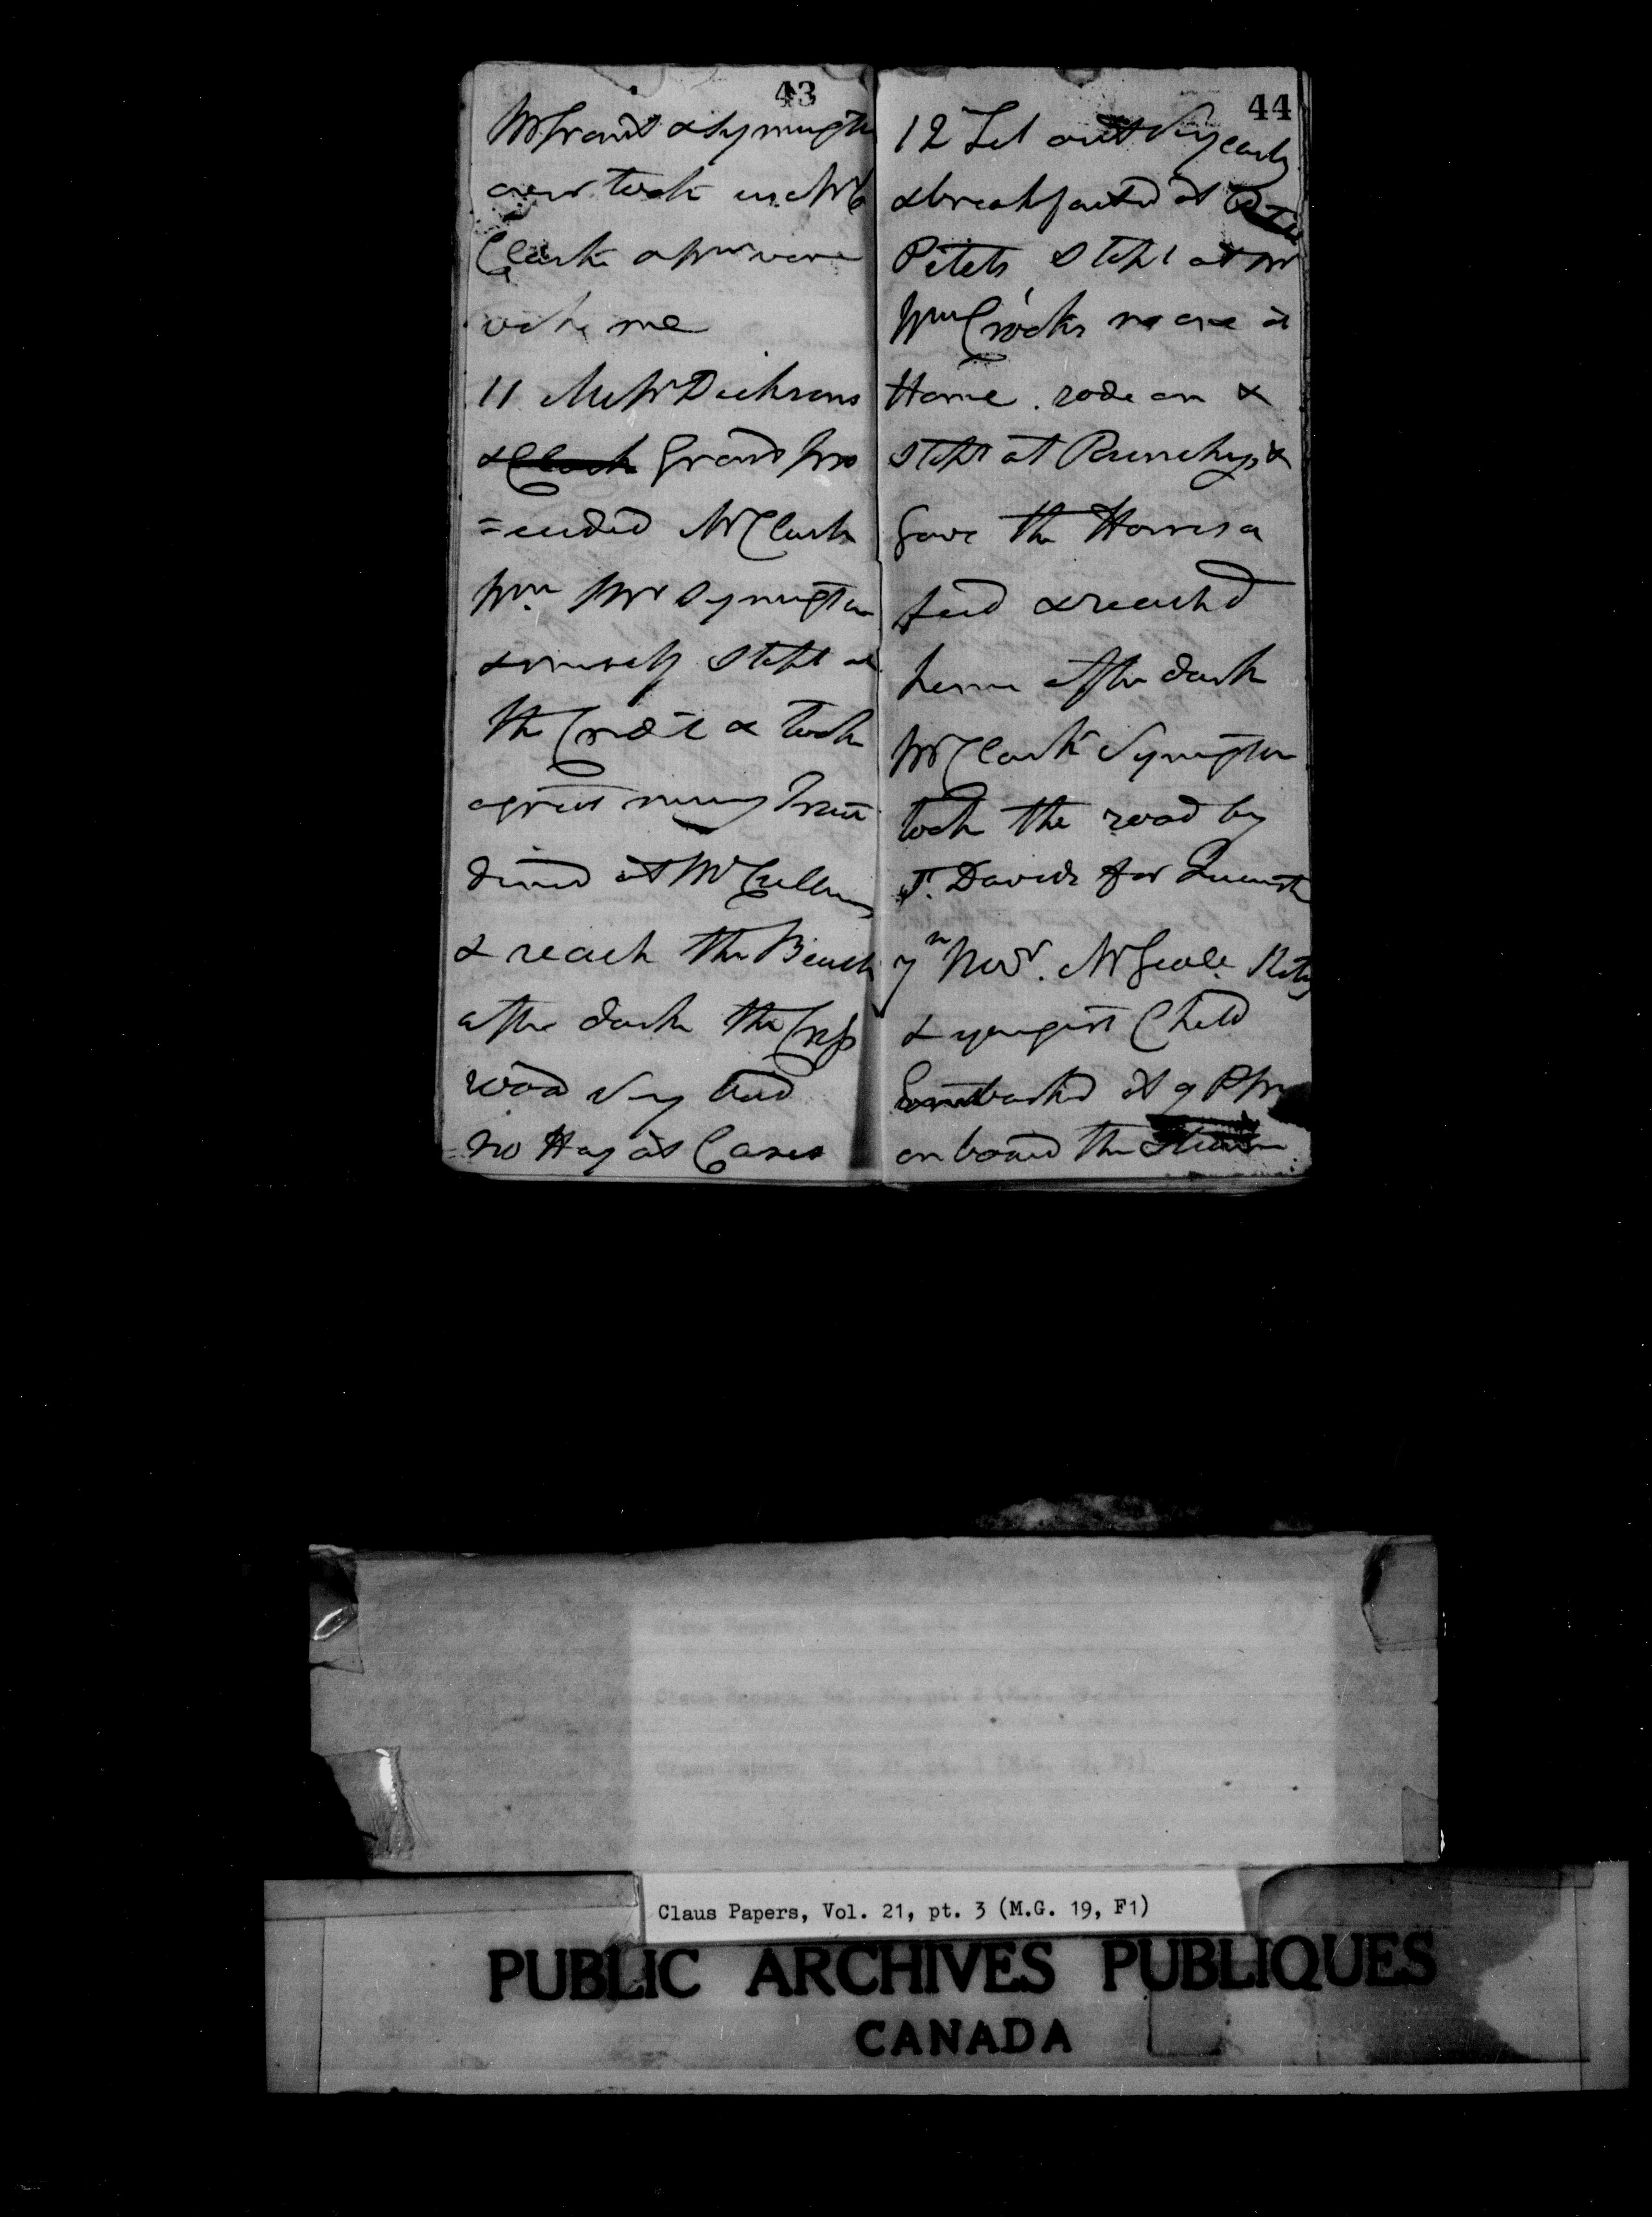 43
Mr Grant & Symington
over took us Mr
Clark & Wm were
with me
11 Messrs Dicksons
& Clark Grant pro
=ceeded Mr Clark
Wm Mr Symington
& myself stopt at
the Credit & took
a great many Trout
dined at McCullums
& reach the Beach
after dark the
road very bad
no Hay at Cases
44
12 Set out very early
& breakfasted at
Petets stopt at Mr
Wm Crooks no one at
Home. rode on &
stopt at Runchys &
gave the Horses a
feed & reachd
home after dark
Mr Clark Symington
took the road by
St. Davids for Queenston
7th Novr. Mr Geale Kitty
& youngest Child
Embarked at 9 P M
on board the Steam
Claus Papers, Vol. 21, pt. 3 (M.G. 19, F1)
PUBLIC ARCHIVES PUBLIQUES
CANADA